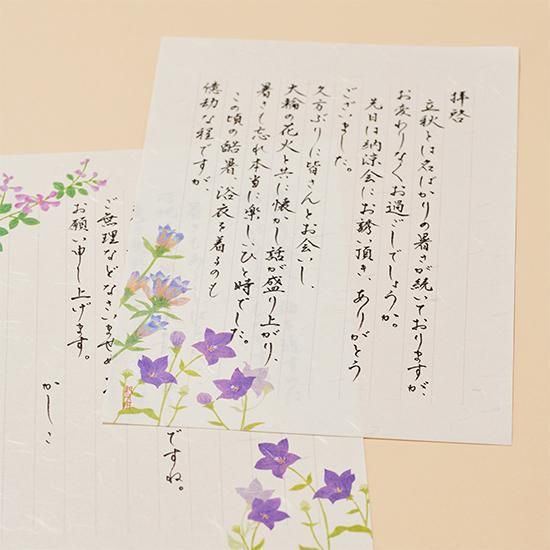 拝啓
立秋とは名ばかりの暑さが続いておりますが、
お変わりなくお過ごしでしょうか。
先日は納涼会にお誘い頂き、ありがとう
ございました。
久方ぶりに皆さんとお会いし、
大輪の花火と共に懐かし話が盛り上がり、
暑さも忘れ本当に楽しいひと時でした。
この頃の酷暑、浴衣を着るのも
億劫な程ですが、
ですね。
ご無理などなさいませぬ
お願い申し上げます。
かしこ